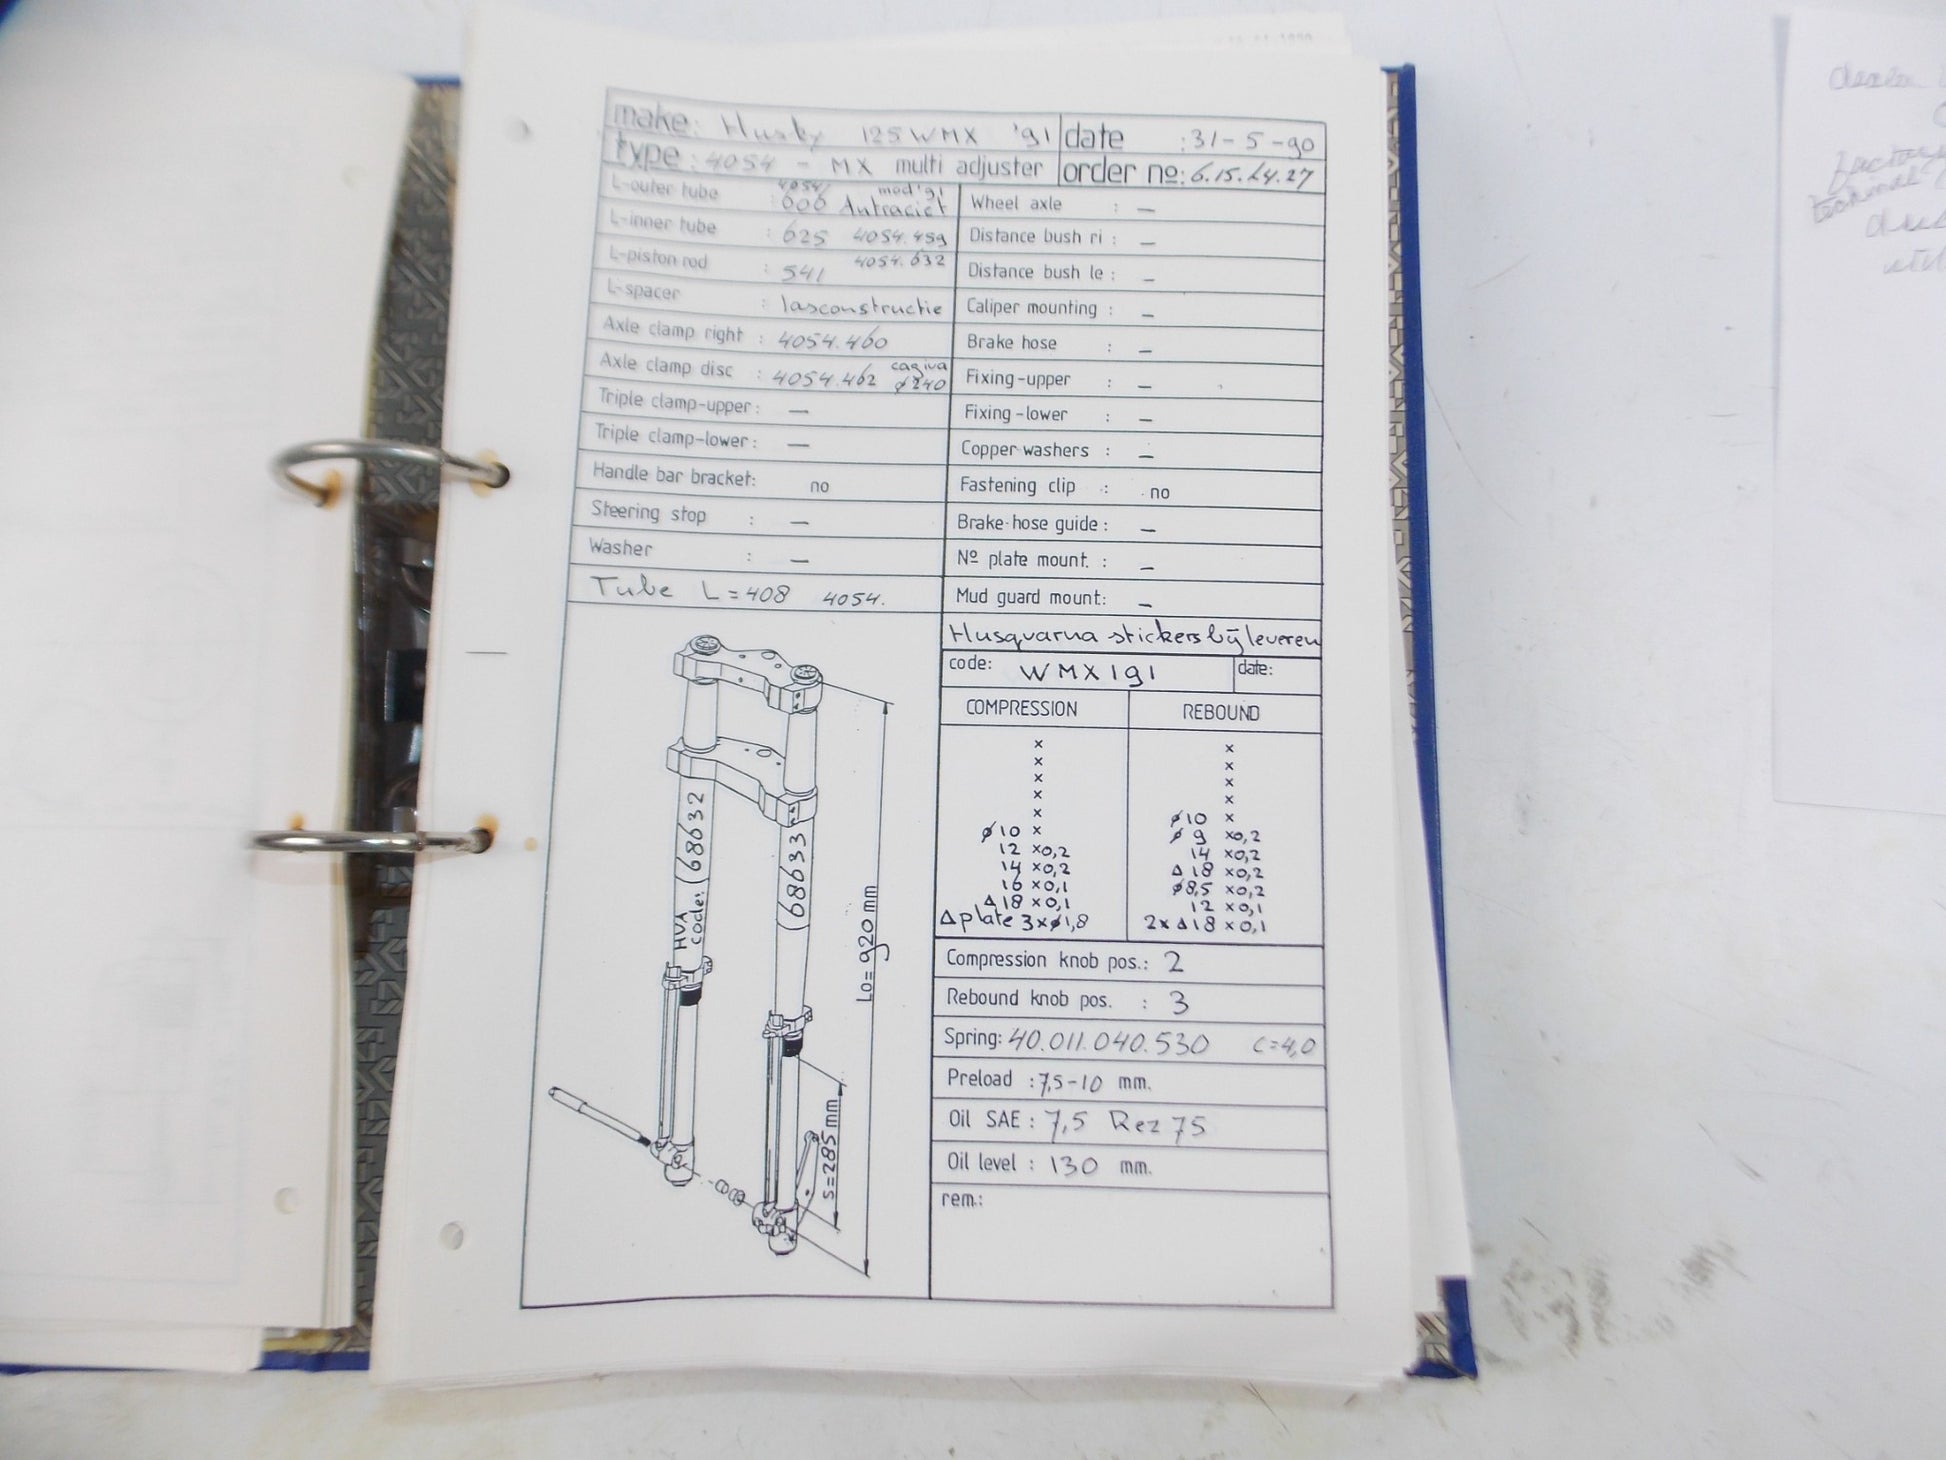 make: Husky 125 WMX '91
date : 31-5-90
type: 4054 - MX multi adjuster
order nº: 6.15.24.27
L-outer tube : 606 4054/ Antraciet mod '91
L-inner tube : 625 4054.459
L-piston rod : 541 4054.632
L-spacer : lasconstructie
Axle clamp right : 4054.460
Axle clamp disc : 4054.462 cagiva ø240
Triple clamp-upper: —
Triple clamp-lower: —
Handle bar bracket: no
Steering stop : —
Washer : —
Tube L=408 4054.
Wheel axle : —
Distance bush ri : —
Distance bush le : —
Caliper mounting : —
Brake hose : —
Fixing-upper : —
Fixing-lower : —
Copper washers : —
Fastening clip : no
Brake-hose guide: —
Nº plate mount. : —
Mud guard mount: —
Husqvarna stickers bijleveren
code: WMX191
date:
COMPRESSION
x
x
x
x
x
ø10 x
12 x0,2
14 x0,2
16 x0,1
Δ18 x0,1
Δplate 3xø1,8
REBOUND
x
x
x
x
ø10 x
ø 9 x0,2
14 x0,2
Δ18 x0,2
ø8,5 x0,2
12 x0,1
2xΔ18 x0,1
Compression knob pos.: 2
Rebound knob pos. : 3
Spring: 40.011.040.530 C=4,0
Preload : 7,5-10 mm.
Oil SAE : 7,5 Rez 75
Oil level : 130 mm.
rem.:
HVA
code: 68632
68633
Lo=920 mm
S=285 mm